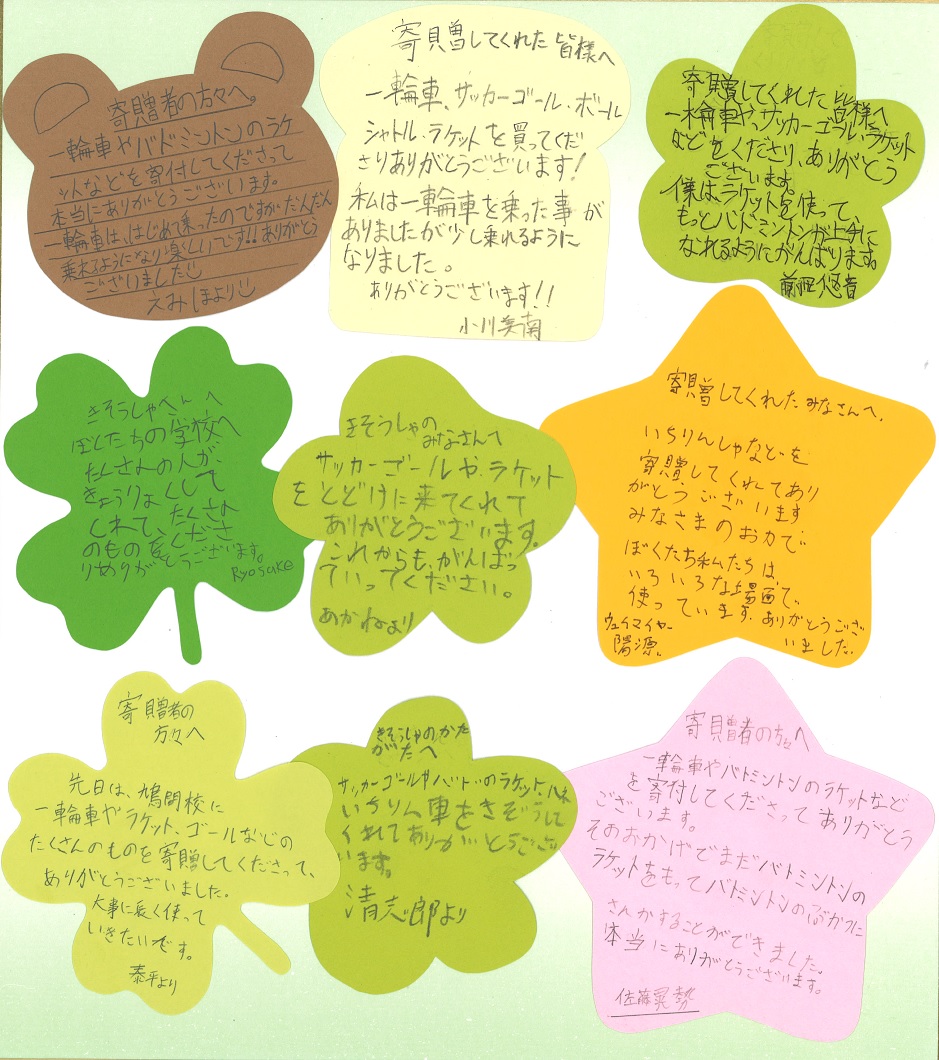 寄贈者の方々へ。
一輪車やバドミントンのラケ
ットなどを寄付してくださって
本当にありがとうございます。
一輪車は、はじめて乗ったのですがだんだん
乗れるようになり楽しいです!!ありがとう
ございました
えみほより
寄贈してくれた皆様へ
一輪車、サッカーゴール・ボール
シャトル・ラケットを買ってくだ
さりありがとうございます!
私は一輪車を乗った事が
ありましたが少し乗れるように
なりました。
ありがとうございます!!
小川美南
寄贈してくれた皆様へ
一輪車や、サッカーゴール、ラケット
などをくださり、ありがとう
ございます。
僕は、ラケットを使って、
もっとバドミントンが上手に
なれるようにがんばります。
きそうしゃへ
ぼくたちの学校へ
たくさんの人が、
きょうりょくして
くれて、たくさん
のものをくださ
りありがとうございます。
Ryosuke
きそうしゃの
みなさんへ
サッカーゴールや、ラケット
をとどけに来てくれて
ありがとうございます。
これからも、がんばっ
ていってください。
あかねより
寄贈してくれたみなさんへ、
いちりんしゃなどを
寄贈してくれてあり
がとうございます
みなさまのおかで
ぼくたち私たちは、
いろいろな場面で、
使っています。ありがとうござ
いました。
ウェイマイヤー
陽源、
寄贈者の
方々へ
先日は、鳩間校に
一輪車やラケット、ゴールなどの
たくさんのものを寄贈してくださって、
ありがとうございました。
大事に長く使って
いきたいです。
泰平より
きそうしゃのかた
がたへ
サッカーゴールやバドのラケット、ハネ
いちりん車をきぞうして
くれてありがとうござい
います。
清志郎より
寄贈者の方々へ
一輪車やバトミントンのラケットなど
を寄付してくださってありがとう
ございます。
そのおかげでまだバトミントンの
ラケットをもってバトミントンのぶかつに
さんかすることができました。
本当にありがとうございます。
佐藤晃勢